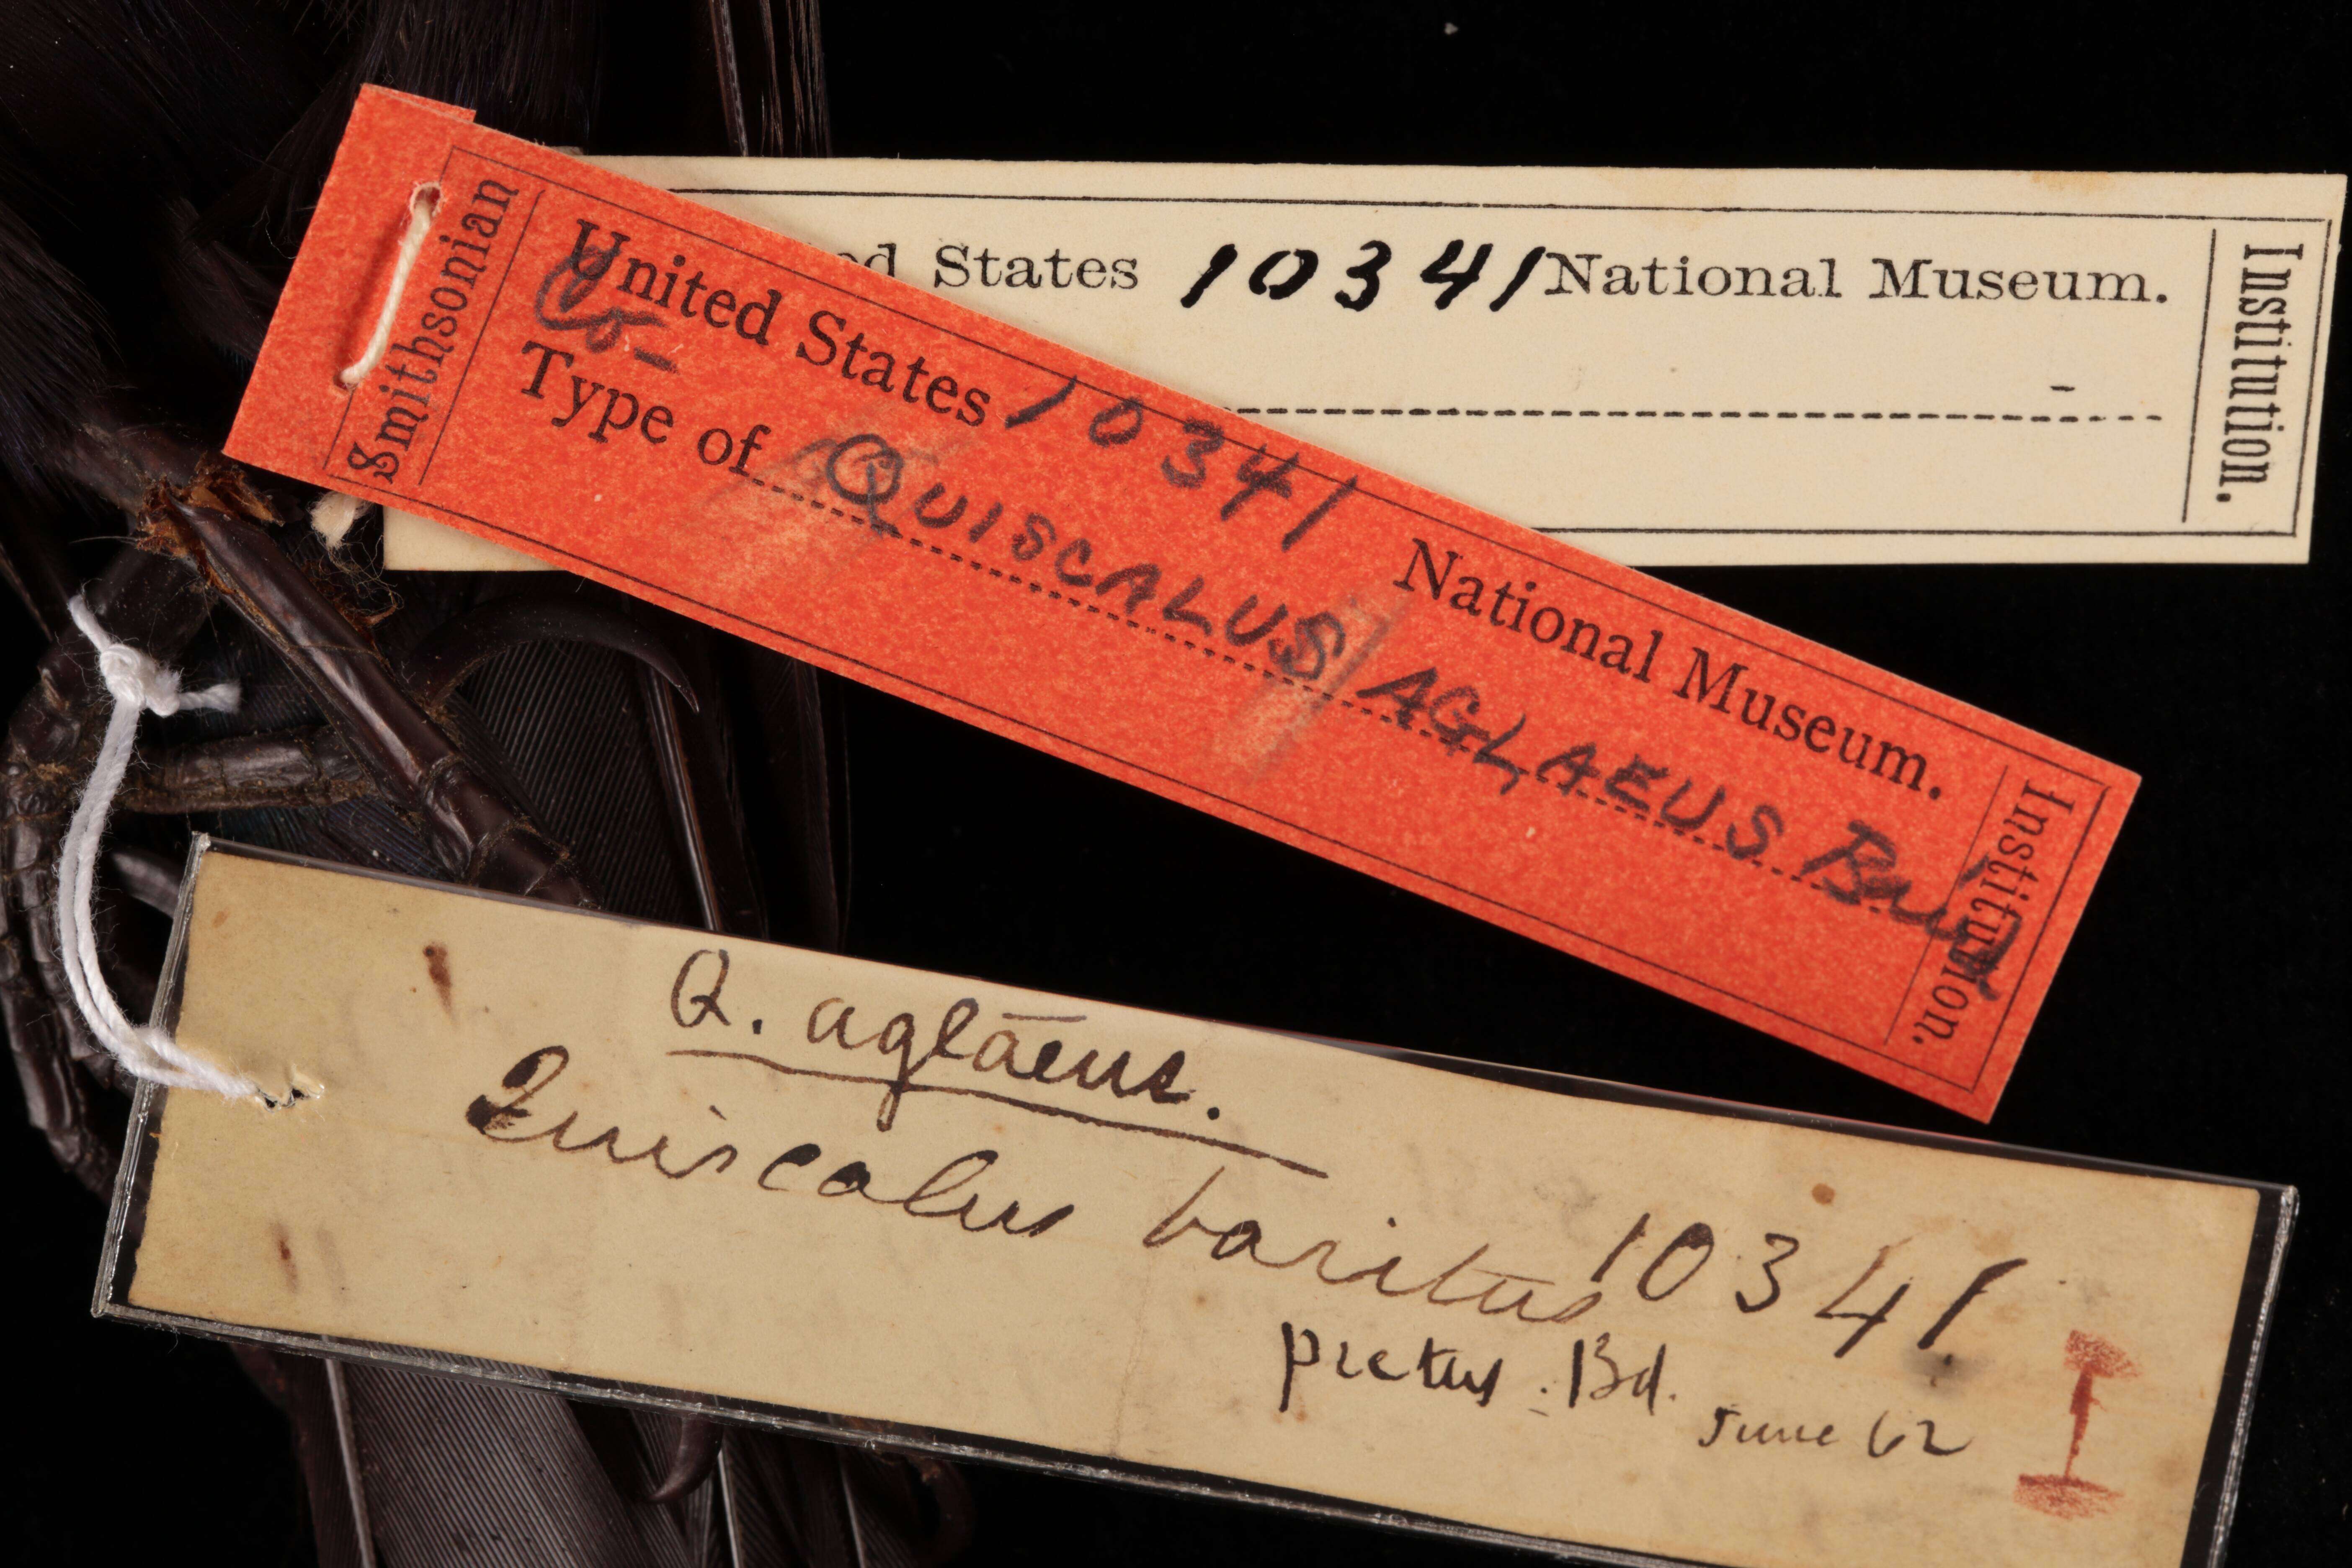 ed States 10341 National Museum.
Institution.
Smithsonian
United States 10341 National Museum.
Co-
Type of QUISCALUS AGLAEUS Baird
Institution.
Q. aglaeus.
Quiscalus baritus 10341
pictus. Bd.
June 62
I